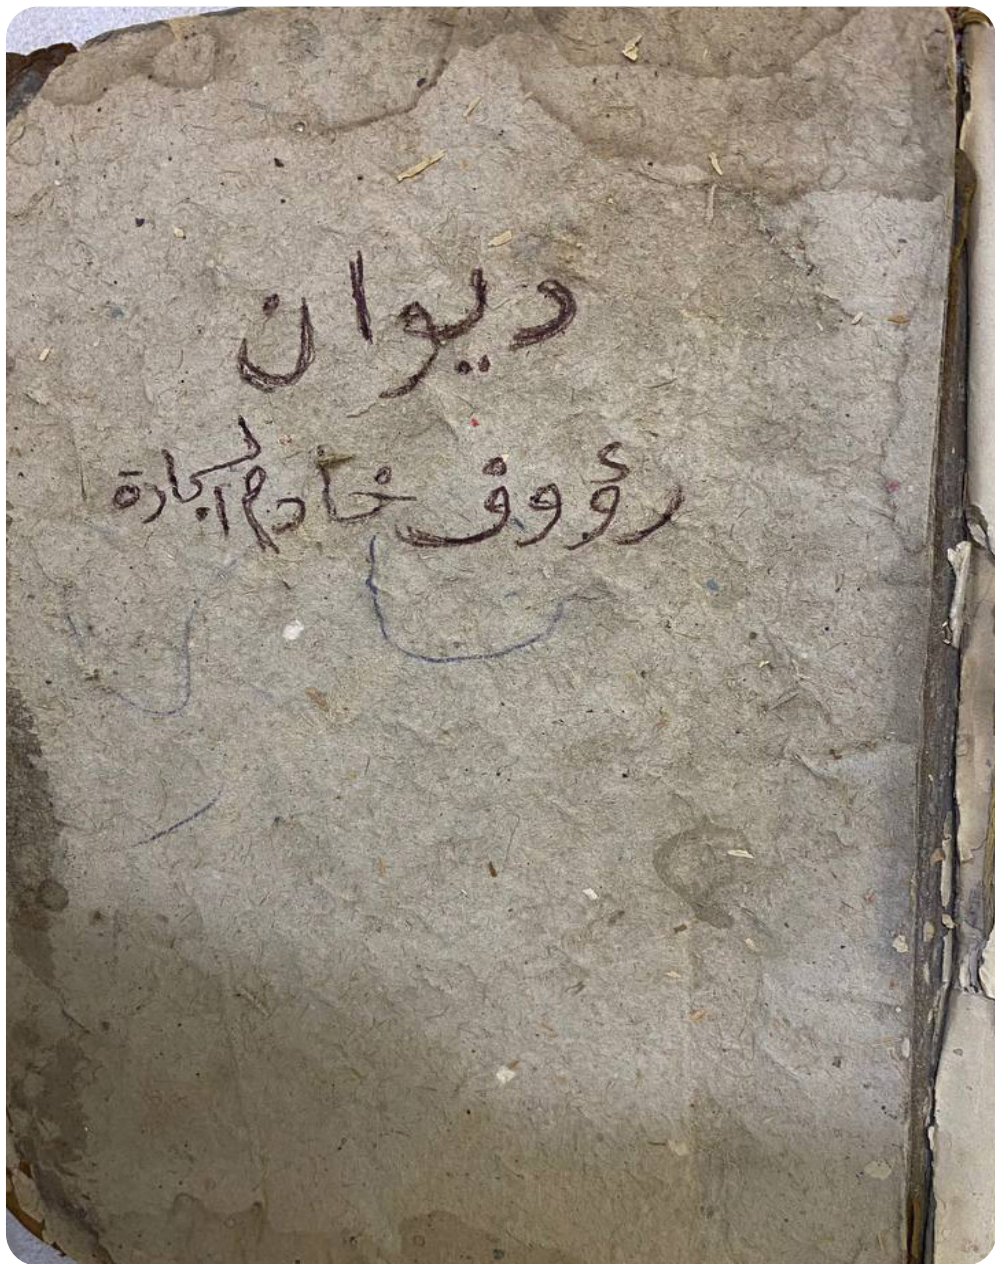 ديوان
رؤوف خادم السجادة